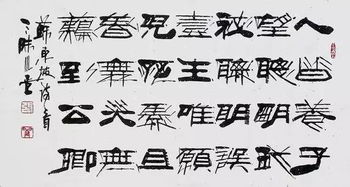 人皆養子
望聰明我
被聰明誤
壹生唯願
孩兒愚且
魯無災無
難至公卿
蘇東坡詩一首